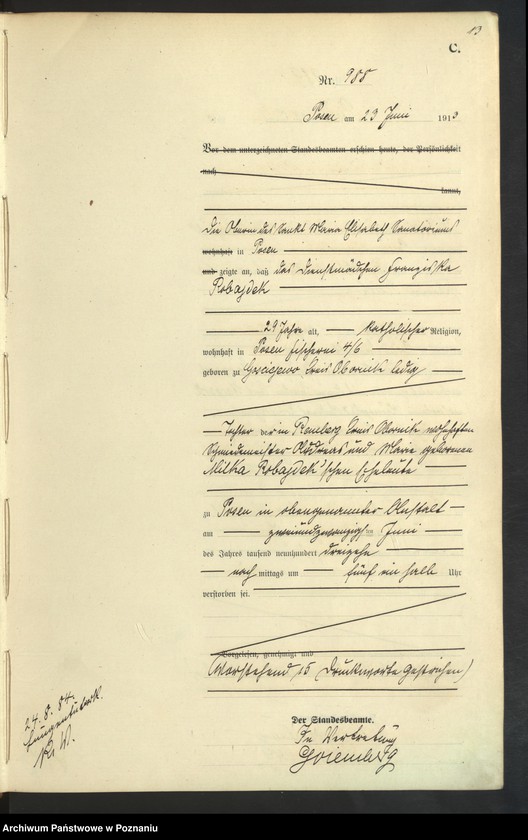 13
C.
Nr. 988
Posen am 23 Juni 1913
Vor dem unterzeichneten Standesbeamten erschien heute, der Persönlichkeit
nach
kannt,
die Oberin des Sankt Maria Elisabeth Sanatoriums
wohnhaft in Posen
und zeigte an, daß das Dienstmädchen Franziska
Robajdek
29 Jahre alt, katholischer Religion,
wohnhaft in Posen Fischerei 4/6
geboren zu Kreis Obornik ledig
Tochter der in Kreis Obornik wohnhaften
Schmiedemeister Andreas und Maria geborenen
Milka Robajdek'schen Eheleute
zu Posen in obengenannter Anstalt
am zweiundzwanzigsten Juni
des Jahres tausend neunhundert dreizehn
nach mittags um fünf ein halb Uhr
verstorben sei.
Vorgelesen, genehmigt und
(Vorstehend 15 Druckworte gestrichen)
24. 8. 84.
Der Standesbeamte.
In Vertretung
Archiwum Państwowe w Poznaniu